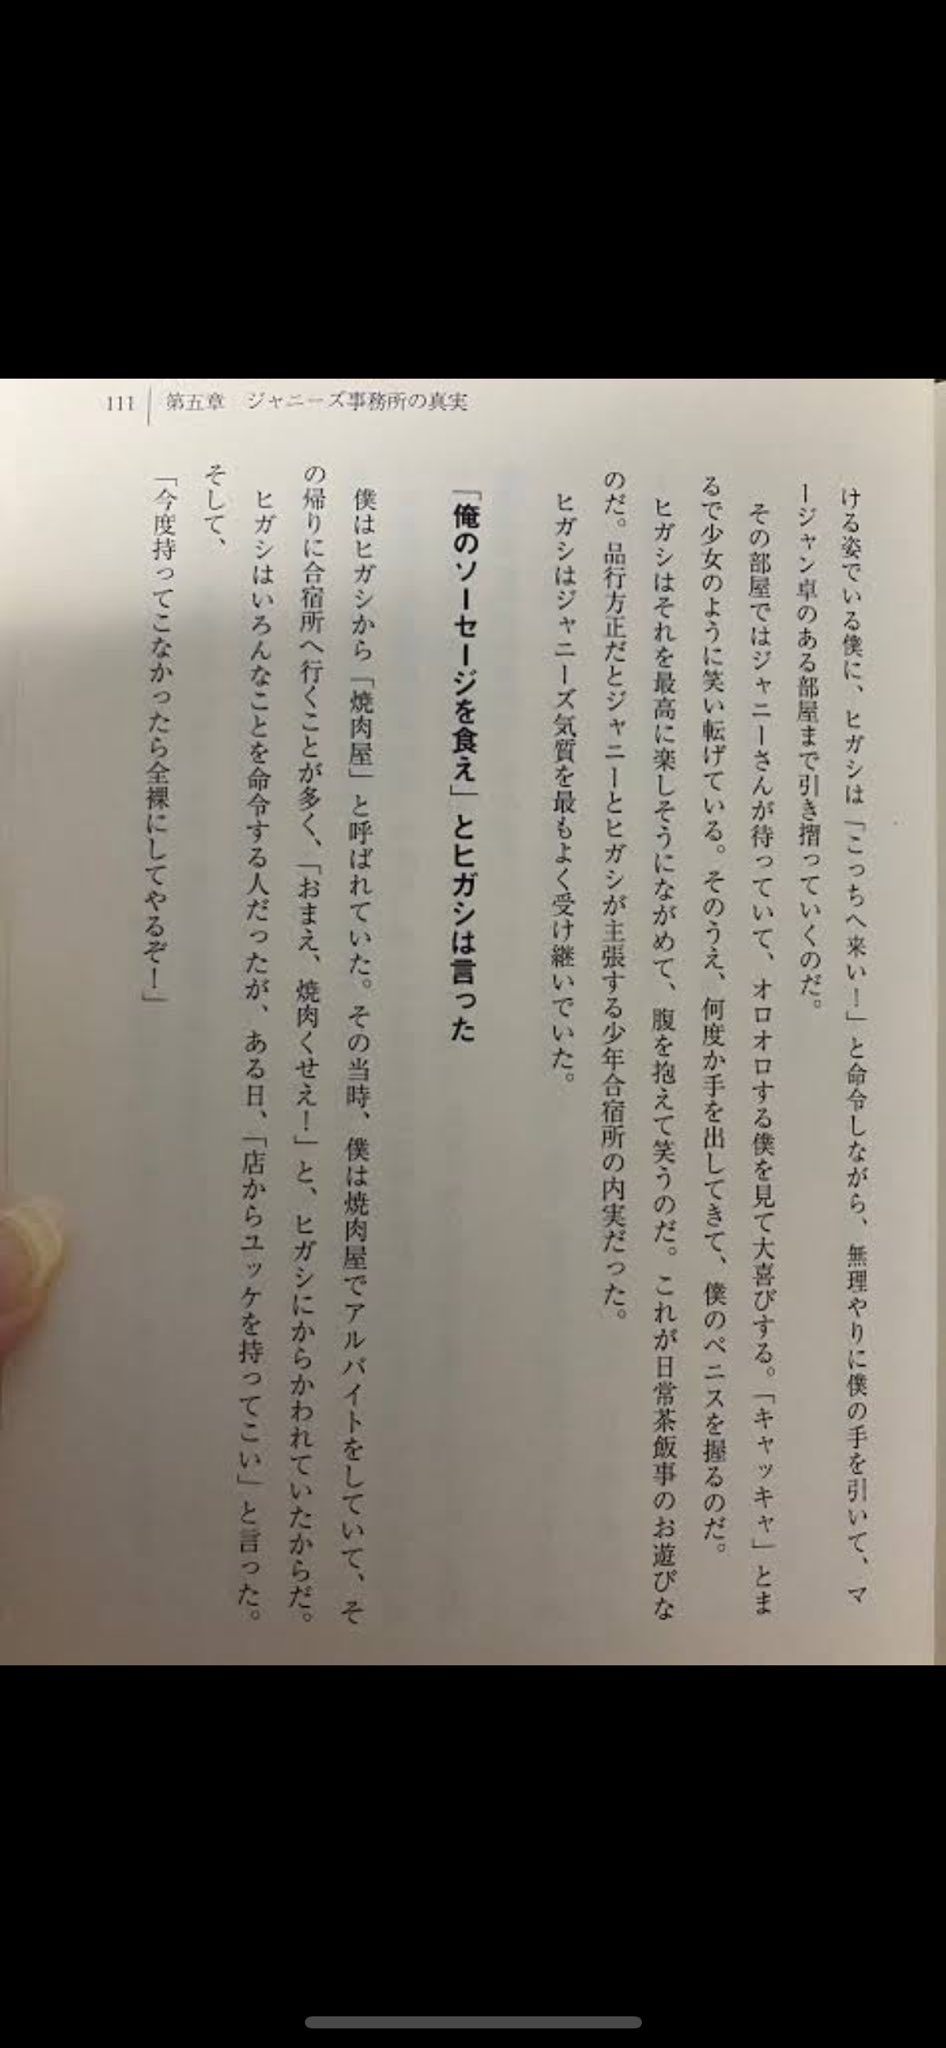 111 第五章 ジャニーズ事務所の真実
ける姿でいる僕に、ヒガシは「こっちへ来い！」と命令しながら、無理やりに僕の手を引いて、マ
ージャン卓のある部屋まで引き摺っていくのだ。
その部屋ではジャニーさんが待っていて、オロオロする僕を見て大喜びする。「キャッキャ」とま
るで少女のように笑い転げている。そのうえ、何度か手を出してきて、僕のペニスを握るのだ。
ヒガシはそれを最高に楽しそうにながめて、腹を抱えて笑うのだ。これが日常茶飯事のお遊びな
のだ。品行方正だとジャニーとヒガシが主張する少年合宿所の内実だった。
ヒガシはジャニーズ気質を最もよく受け継いでいた。
「俺のソーセージを食え」とヒガシは言った
僕はヒガシから「焼肉屋」と呼ばれていた。その当時、僕は焼肉屋でアルバイトをしていて、そ
の帰りに合宿所へ行くことが多く、「おまえ、焼肉くせえ！」と、ヒガシにからかわれていたからだ。
ヒガシはいろんなことを命令する人だったが、ある日、「店からユッケを持ってこい」と言った。
そして、
「今度持ってこなかったら全裸にしてやるぞ！」